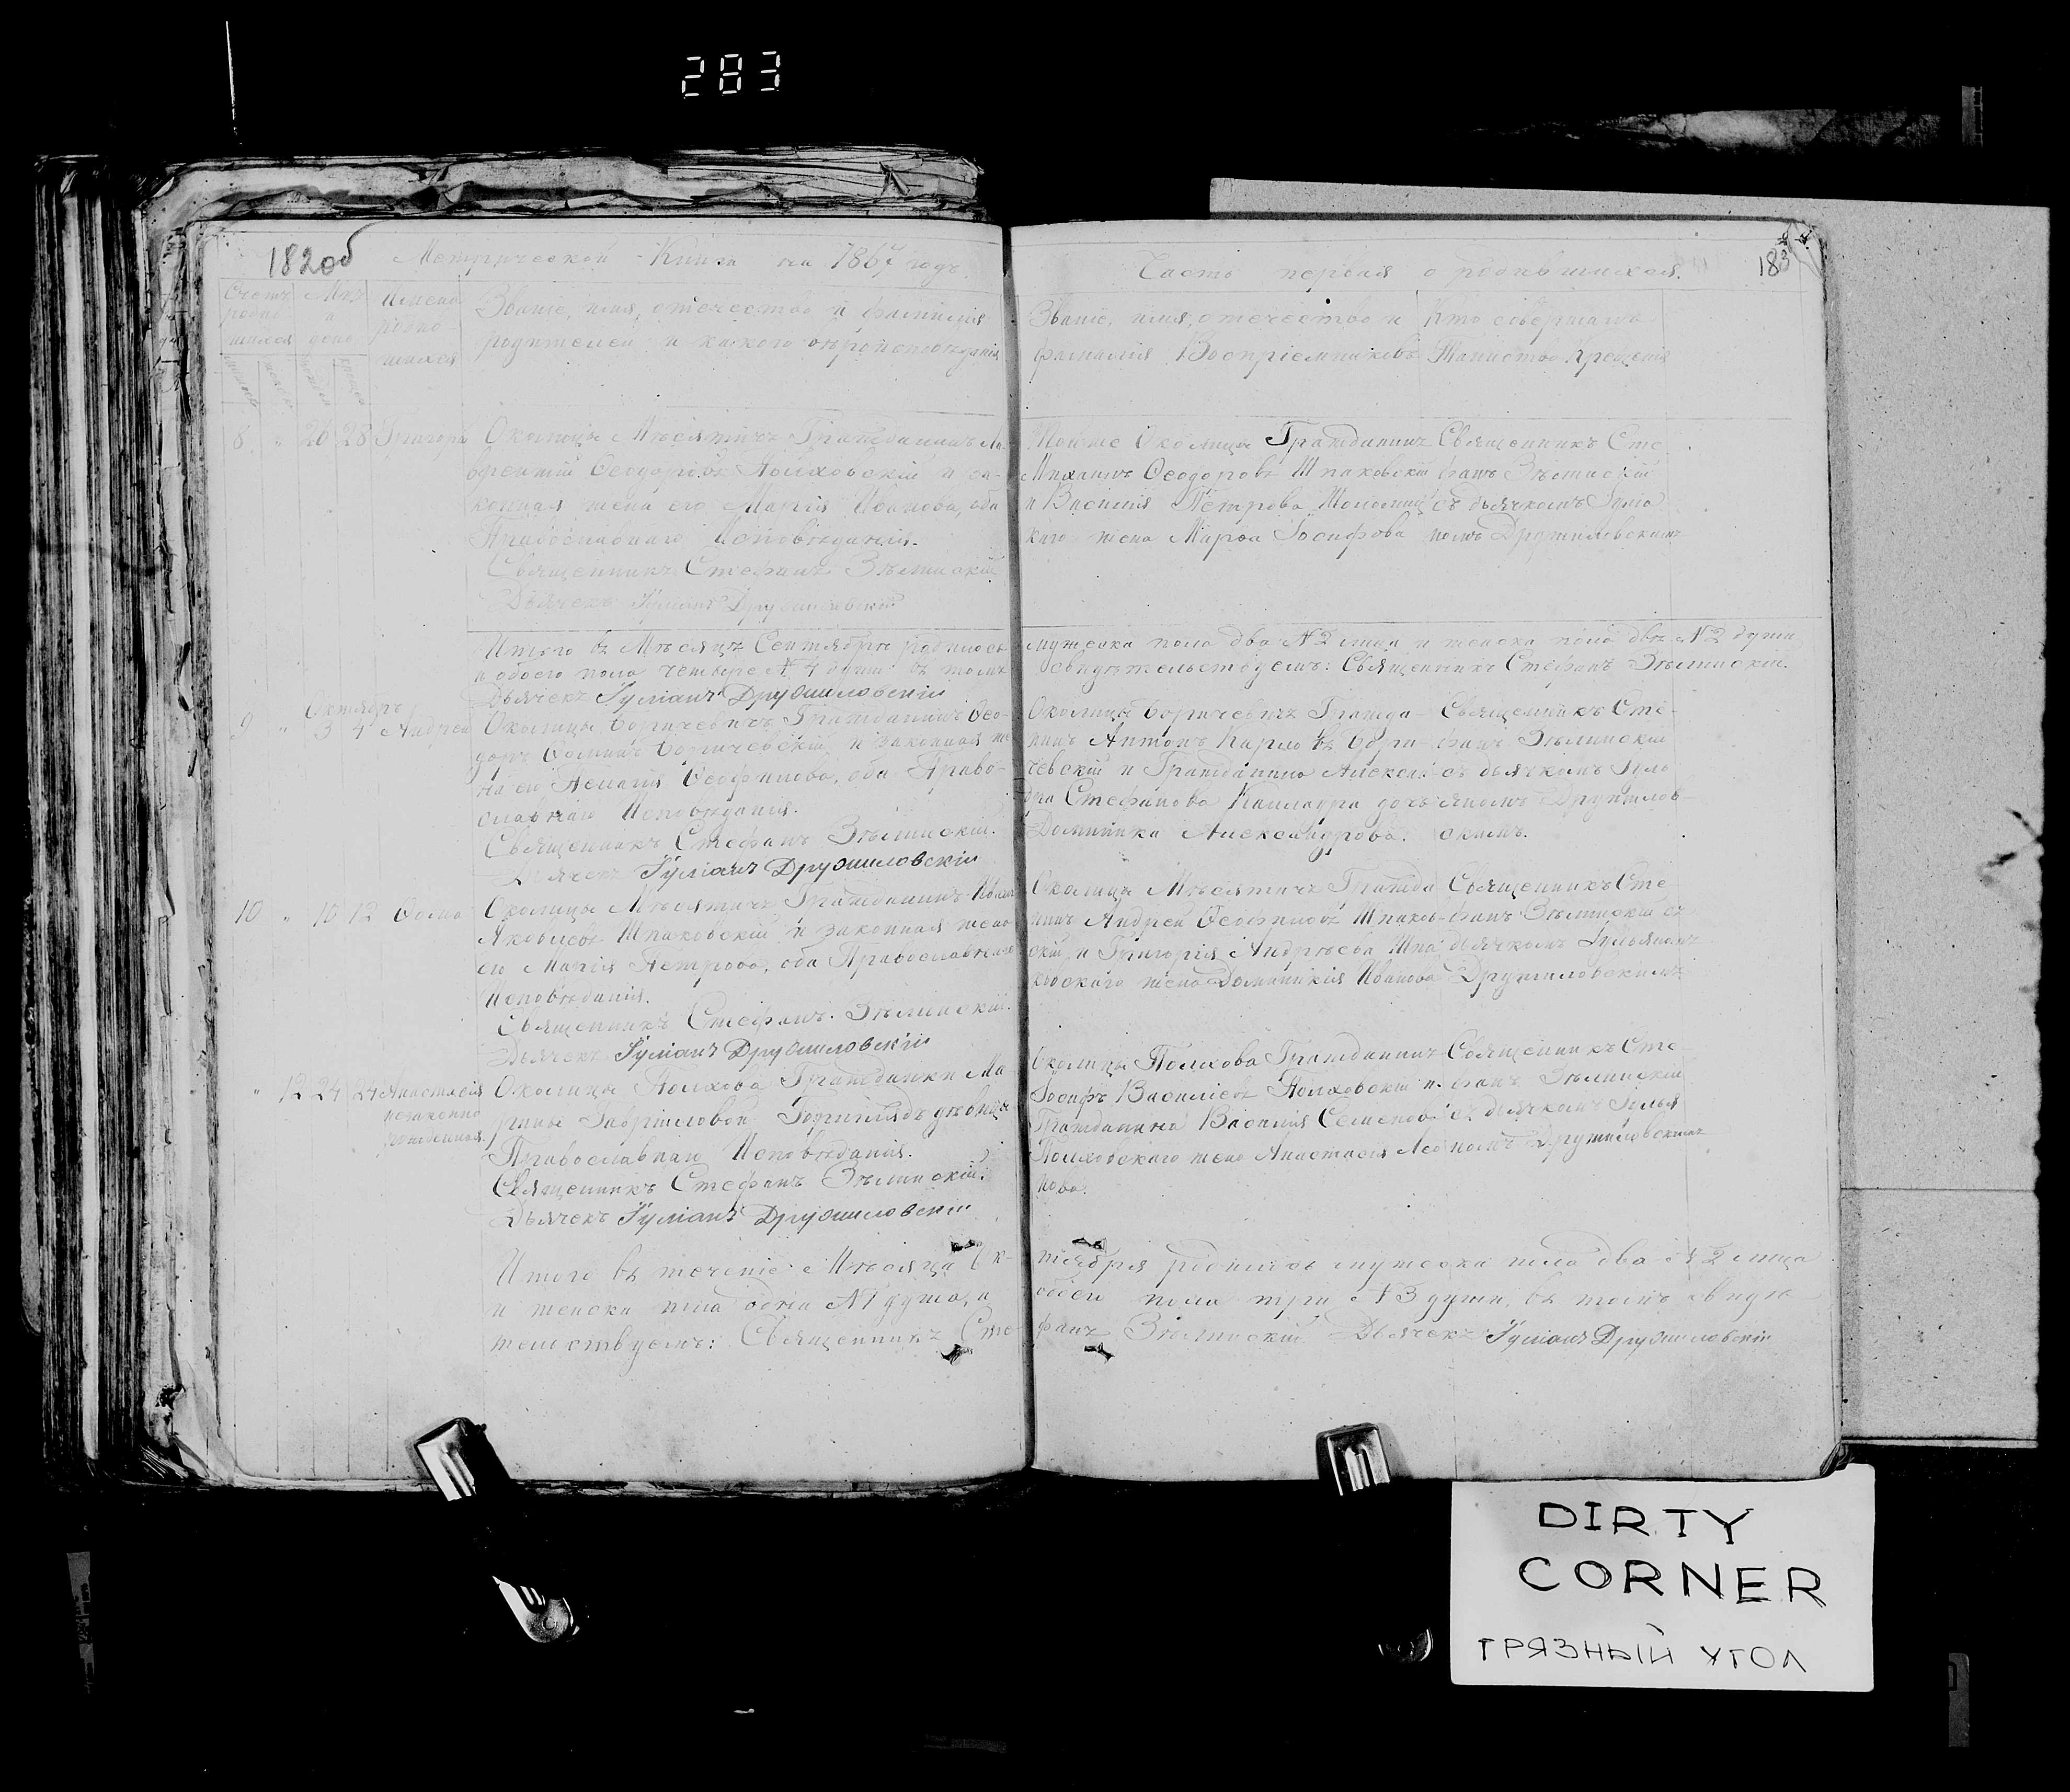 283
182об
Метрической Книги на 1867 годъ.
Часть первая о родившихся.
183
Счетъ родившихся
Мѣс. и день
Имена родившихся
Званіе, имя, отечество и фамилія
родителей и какого вѣроисповѣданія
Званіе, имя, отечество и
фамилія Воспріемниковъ
Кто совершалъ
Таинство Крещенія
8 " 26 28 Григорій
Околицы Мѣсятичъ Гражданинъ Ла-
врентій Ѳеодоровъ Полховскій и за-
конная жена его Марія Иванова, оба
Православнаго Исповѣданія.
Священникъ Стефанъ Зѣлинскій
Дьячекъ Гуліанъ Дружиловскій
Тойже Околицы Гражданинъ
Михаилъ Ѳеодоровъ Шпаковскій
и Василія Петрова
жена Марѳа Іосифова
Священникъ Сте
фанъ Зѣлинскій
съ дьячкомъ Гулія
номъ Дружиловскимъ
Итого въ Мѣсяцѣ Сентябрѣ родилось
и обоего пола четыре № 4 души въ томъ
Дьячекъ Гуліанъ Дружиловскій
мужеска пола два № 2 лица и женска пола двѣ № 2 души
свидѣтельствуемъ: Священникъ Стефанъ Зѣлинскій.
Октябрь
9 " 3 4 Андрей
Околицы Боричевичъ Гражданинъ Ѳео-
доръ Боричевскій и законная же
на его Ѳеофилова, оба Право-
славнаго Исповѣданія.
Священникъ Стефанъ Зѣлинскій.
Дьячекъ Гуліанъ Дружиловскій
Околицы Боричевичъ Гражда-
нинъ Антонъ Карловъ Бори-
чевскій и Гражданина Алексан-
дра Стефанова дочь
Доминика Александрова.
Священникъ Сте-
фанъ Зѣлинскій
съ дьячкомъ Гулі
яномъ Дружилов-
скимъ.
10 " 10 12 Ѳома
Околицы Мѣсятичъ Гражданинъ
Яковлевъ Шпаковскій и законная жена
его Марія Петрова, оба Православнаго
Исповѣданія.
Священникъ Стефанъ Зѣлинскій.
Дьячекъ Гуліанъ Дружиловскій
Околицы Мѣсятичъ Гражда
нинъ Андрей Ѳеофиловъ Шпаков-
скій, и Григорія Андрѣева Шпа
ковскаго жена Доминикія Иванова
Священникъ Сте
фанъ Зѣлинскій съ
дьячкомъ Гульяномъ
Дружиловскимъ
" 12 24 24 Анастасія
незаконно
рожденная.
Околицы Полхова Гражданки Ма-
рины Гавріиловой дѣвицы
Православнаго Исповѣданія.
Священникъ Стефанъ Зѣлинскій.
Дьячекъ Гуліанъ Дружиловскій
Околицы Полхова Гражданинъ
Іосифъ Василіевъ Полховскій и
Гражданина Василія Семенова
Полховскаго жена Анастасія Лео
нова.
Священникъ Сте-
фанъ Зѣлинскій
съ дьячкомъ Гулья
номъ Дружиловскимъ
Итого въ теченіе Мѣсяца Ок-
и женска пола одна № 1 душа, а
тельствуемъ: Священникъ Сте-
тября родилось мужеска пола два № 2 лица
обоего пола три № 3 души, въ томъ свидѣ
фанъ Зѣлинскій Дьячекъ Гуліанъ Дружиловскій
DIRTY
CORNER
ГРЯЗНЫЙ УГОЛ